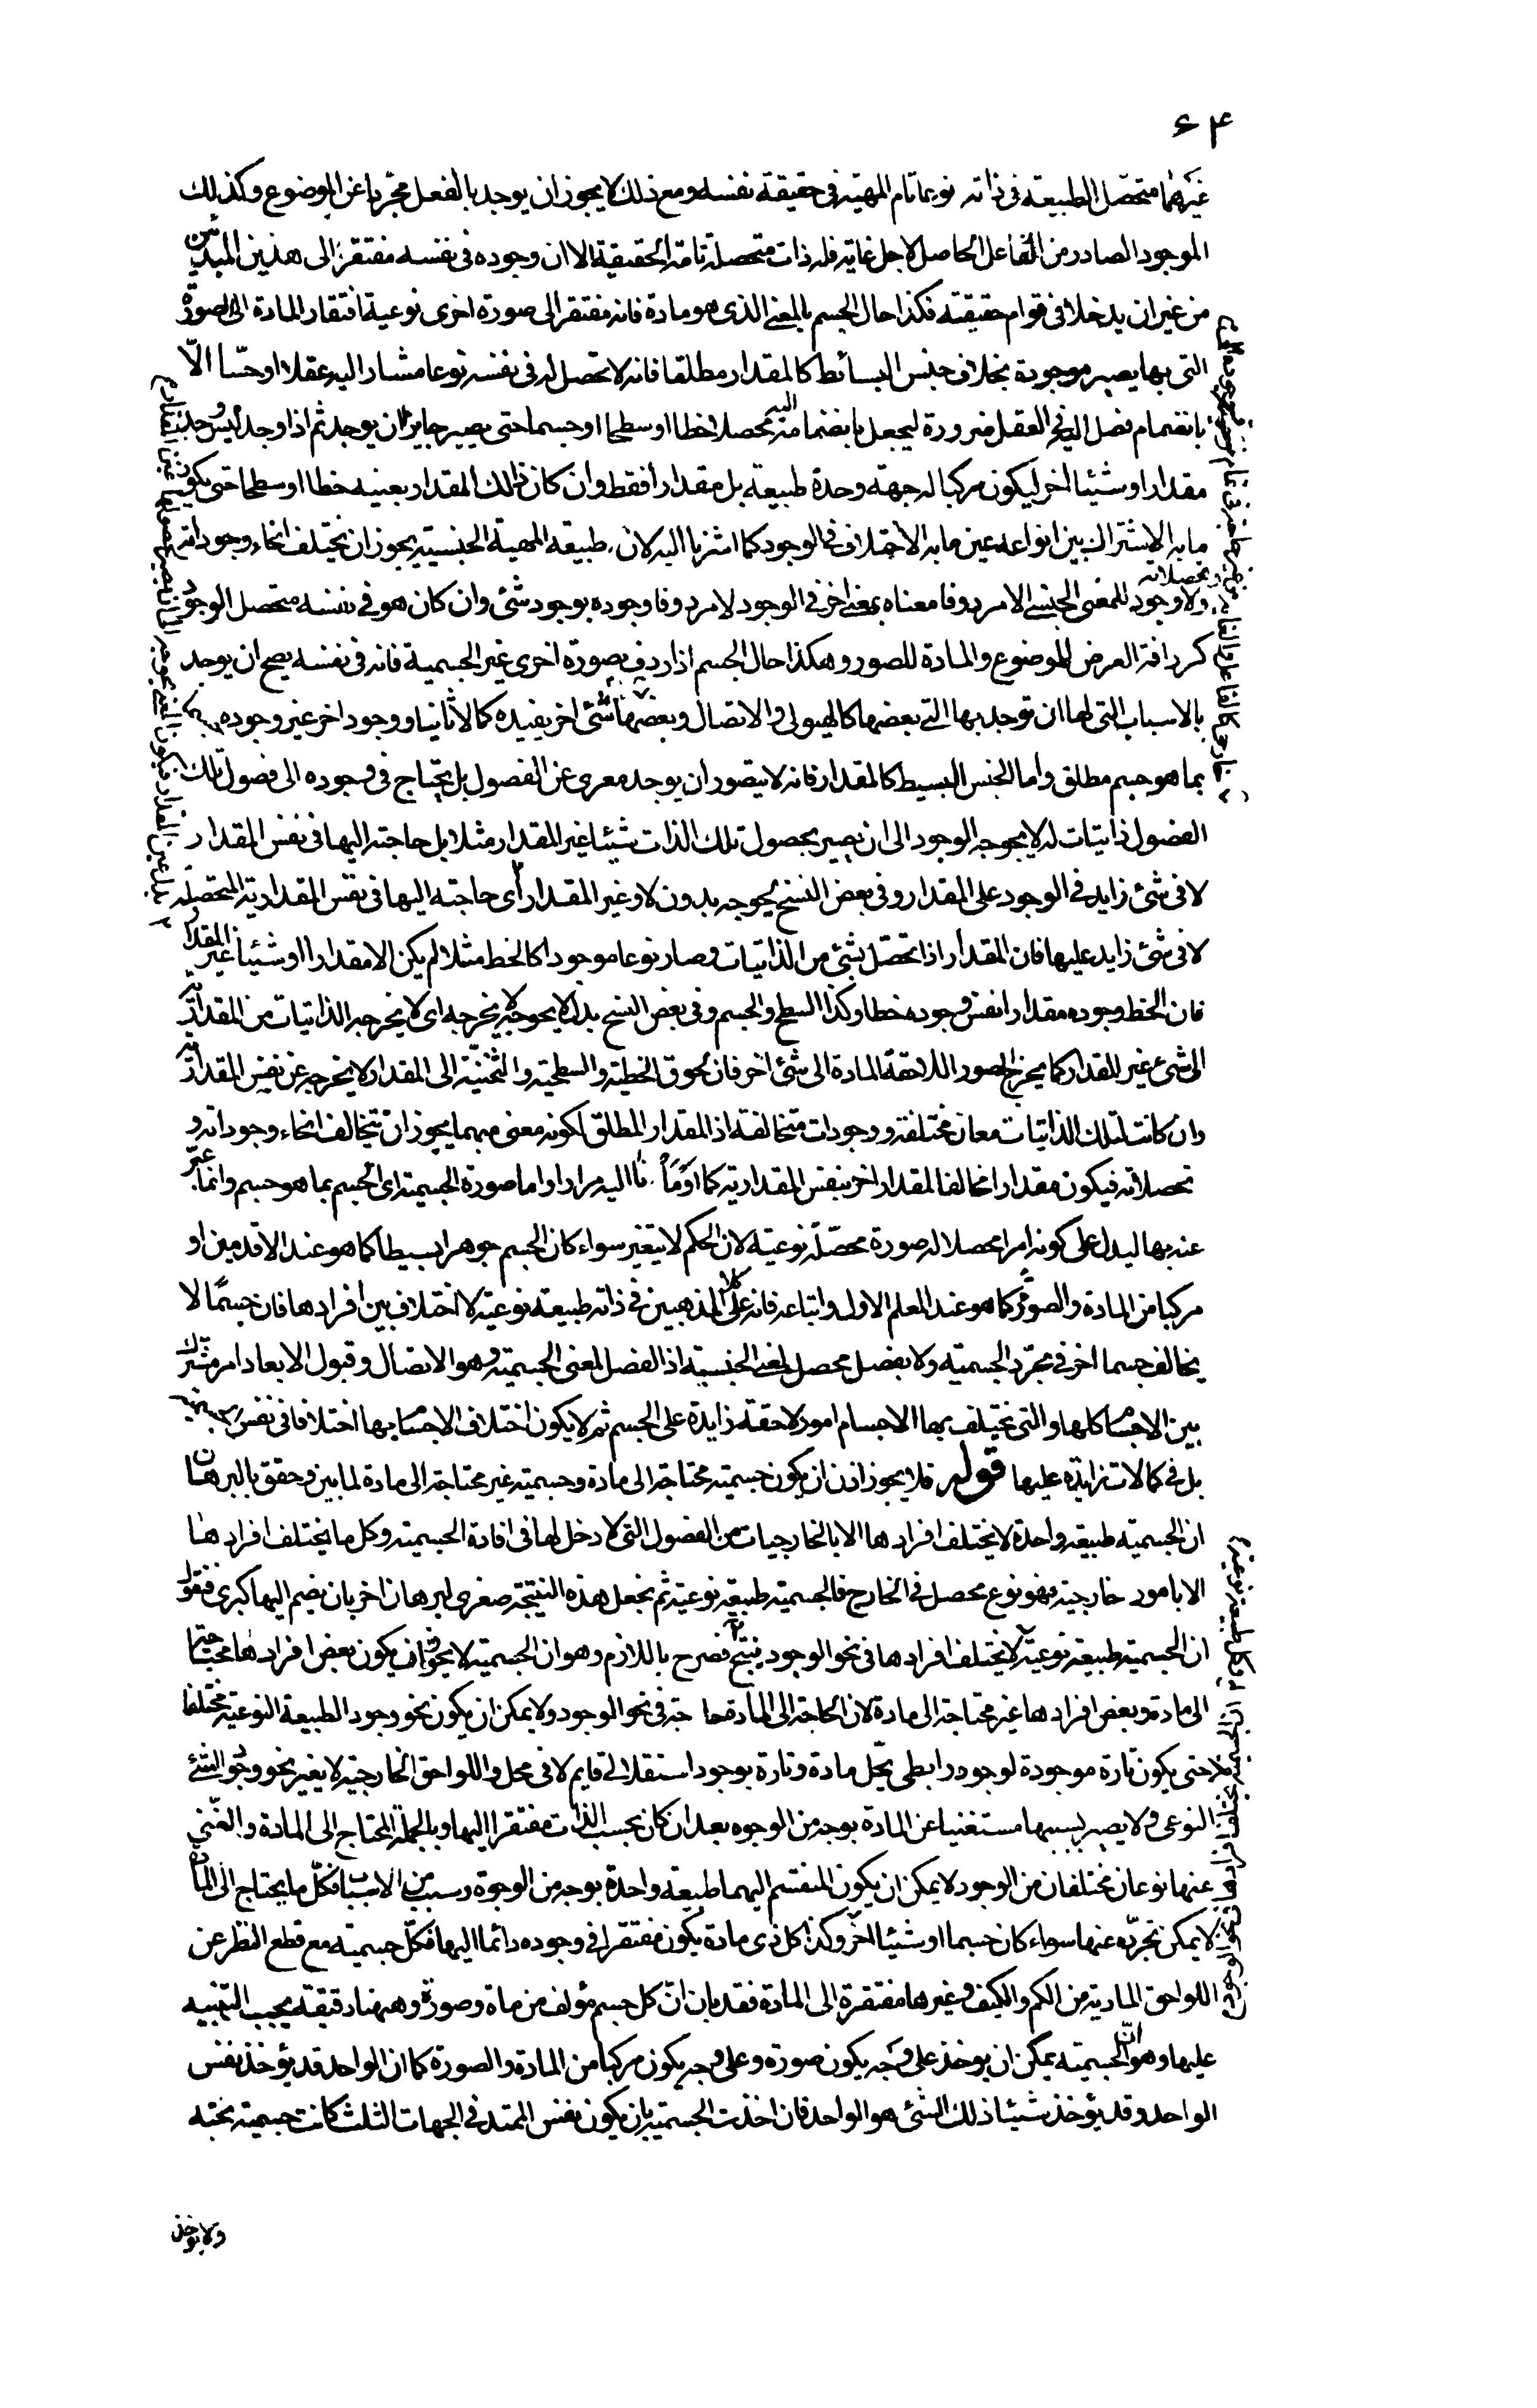 ۶۴
غيرهما متحصّل الطبيعة فى ذاته نوعيا تام المهيّة فى حقيقة نفسه ومع ذلك لا يجوز ان يوجد بالفعل مجرّدا عن الموضوع وكذلك
الموجود الصادر من الفاعل الحاصل لاجل غاية فله ذات متحصلة تامة الحقيقة الا ان وجوده فى نفسه مفتقر الى هذين المبدئين
من غير ان يدخلا فى قوام حقيقته فكذا حال الجسم بالمعنى الذى هو مادة فانه مفتقر الى صورة اخرى نوعية افتقار المادة الى الصورة
التى بها يصير موجودة بخلاف جنس البسائط كالمقدار مطلقا فانه لا تحصل له فى نفسه نوعا مشارا اليه عقلا او حسّا الّا
بانضمام فصل اليه فى العقل ضرورة ليجعل بانضمامه اليه محصلا خطا او سطحا او جسما حتى يصير جايزا ان يوجد ثم اذا وجد ليس وجد
مقدارا وشيئا اخر ليكون مركبا له جهة وحدة طبيعية بل مقدارا فقط وان كان ذلك المقدار بعينه خطا او سطحا حتى يكون
ما به الاشتراك بين انواعه عين ما به الاختلاف فى الوجود كما اشرنا اليه لان طبيعة المهية الجنسية يجوز ان يختلف انحاء وجوداته
وتحصلاته
ولا وجود للمعنى الجنسى الا مردوفا معناه بمعنى اخر فى الوجود لا مردوفا وجوده بوجود شئ وان كان هو فى نفسه متحصل الوجود
كردافة العرض للموضوع والمادة للصور وهكذا حال الجسم اذا ردف بصورة اخرى غير الجسمية فانه فى نفسه يصح ان يوجد
بالاسباب التى لها ان توجد بها التى بعضها كالهيولى والاتصال وبعضها شئ اخر يفيده كمالا ثانيا ووجود اخر غير وجوده
بما هو جسم مطلق واما الجنس البسيط كالمقدار فانه لا يتصور ان يوجد معرى عن الفصول بل يحتاج فى وجوده الى فصول تلك
الفصول ذاتيات له لا يحوجه الوجود الى ان يصير بحصول تلك الذات شيئا غير المقدار مثلا بل حاجته اليها فى نفس المقدار
لا فى شئ زايد فى الوجود على المقدار وفى بعض النسخ يحوجه بدون لا وغير المقدار أى حاجته اليها فى نفس المقدارية المتحصلة
لا فى شئ زايد عليها فان المقدار اذا تحصّل بشئ من الذاتيات وصار نوعا موجودا كالخط مثلا لم يكن الا مقدارا او شيئا غير المقدار
فان الخط وجوده مقدارا نفس وجوده خطا وكذا السطح والجسم وفى بعض النسخ بدل لا يحوجه لا يخرجه اى لا يخرجه الذاتيات من المقدارية
الى شئ غير المقدار كما يخرج الصور اللاحقة المادة الى شئ اخر فان لحوق الخطية والسطحية والثخنيّة الى المقدار لا يخرجه عن نفس المقدارية
وان كانت لتلك الذاتيات معان مختلفة ووجودات متخالفة اذ المقدار المطلق لكونه معنى مبهما يجوز ان تتخالف انحاء وجوداته و
تحصلاته فيكون مقدارا مخالفا لمقدار اخر بنفس المقدارية كما اومأنا اليه مرارا واما صورة الجسمية اى الجسم بما هو جسم وانّما عبّر
عنه بها ليدل على كونه امرا محصلا له صورة محصّلة نوعية لان الحكم لا يتغير سواء كان الجسم جوهرا بسيطا كما هو عند الاقدمين او
مركبا من المادة والصورة كما هو عند المعلم الاول واتباعه فانه على كلا المذهبين فى ذاته طبيعة نوعية لا اختلاف بين افرادها فان جسمًا لا
يخالف جسما اخر فى مجرّد الجسمية ولا بفصل محصل لمعنى الجنسية اذ الفصل لمعنى الجسمية وهو الاتصال وقبول الابعاد امر مشترك
بين الاجسام كلها والتى تختلف بها الاجسام امور لاحقة زايدة على الجسم ثم لا يكون اختلاف الاجسام بها اختلافا فى نفس
بل فى كمالات زايدة عليها قوله فلا يجوز اذن ان يكون جسمية محتاجة الى مادة وجسمية غير محتاجة الى مادة لما بين وحقق بالبرهان
ان الجسمية طبيعة واحدة لا يختلف افرادها الا بالخارجيات من الفصول التى لا دخل لها فى افادة الجسمية وكل ما يختلف افرادها
الا بامور خارجية فهو نوع محصل فى الخارج فالجسمية طبيعة نوعية ثم نجعل هذه النتيجة صغرى لبرهان اخر بان نضم اليها كبرى فنقول
ان الجسمية طبيعة نوعية لا يختلف افرادها فى نحو الوجود ينتج فصرح باللازم وهو ان الجسمية لا يجوز ان يكون بعض افرادها محتاجا
الى مادة وبعض افرادها غير محتاجة الى مادة لان الحاجة الى المادة حاجة فى نحو الوجود ولا يمكن ان يكون نحو وجود الطبيعة النوعية مختلفا
حتى يكون تارة موجودة لوجود رابطى بحّل مادة وتارة بوجود استقلالى قايم لا فى محل واللواحق الخارجية لا يغير نحو وجود الشئ
النوعى ولا يصير بسببها مستغنيا عن المادة بوجه من الوجوه بعد ان كان بحسب الذات مفتقرا اليها وبالجملة المحتاج الى المادة والغنى
عنها نوعان مختلفان من الوجود لا يمكن ان يكون المنقسم اليهما طبيعة واحدة بوجه من الوجوه وسبب من الاسباب فكلّ ما يحتاج الى المادة
لا يمكن تجرّده عنها سواء كان جسما او شيئا اخر وكذا كل ذى مادة يكون مفتقرا فى وجوده دائما اليها فكلّ جسمية مع قطع النظر عن
اللواحق المادية من الكم والكيف وغيرها مفتقرة الى المادة فقد بان انّ كل جسم مؤلف من مادة وصورة وههنا دقيقة يجب التنبيه
عليها وهو انّ الجسمية يمكن ان يوخذ على وجه يكون صورة وعلى وجه يكون مركبا من المادة والصورة كما ان الواحد قد يؤخذ نفس
الواحد وقد يؤخذ شيئا ذلك الشئ هو الواحد فان اخذت الجسمية بان يكون نفس الممتد فى الجهات الثلث كانت جسمية بحتة
ولا يوخذ